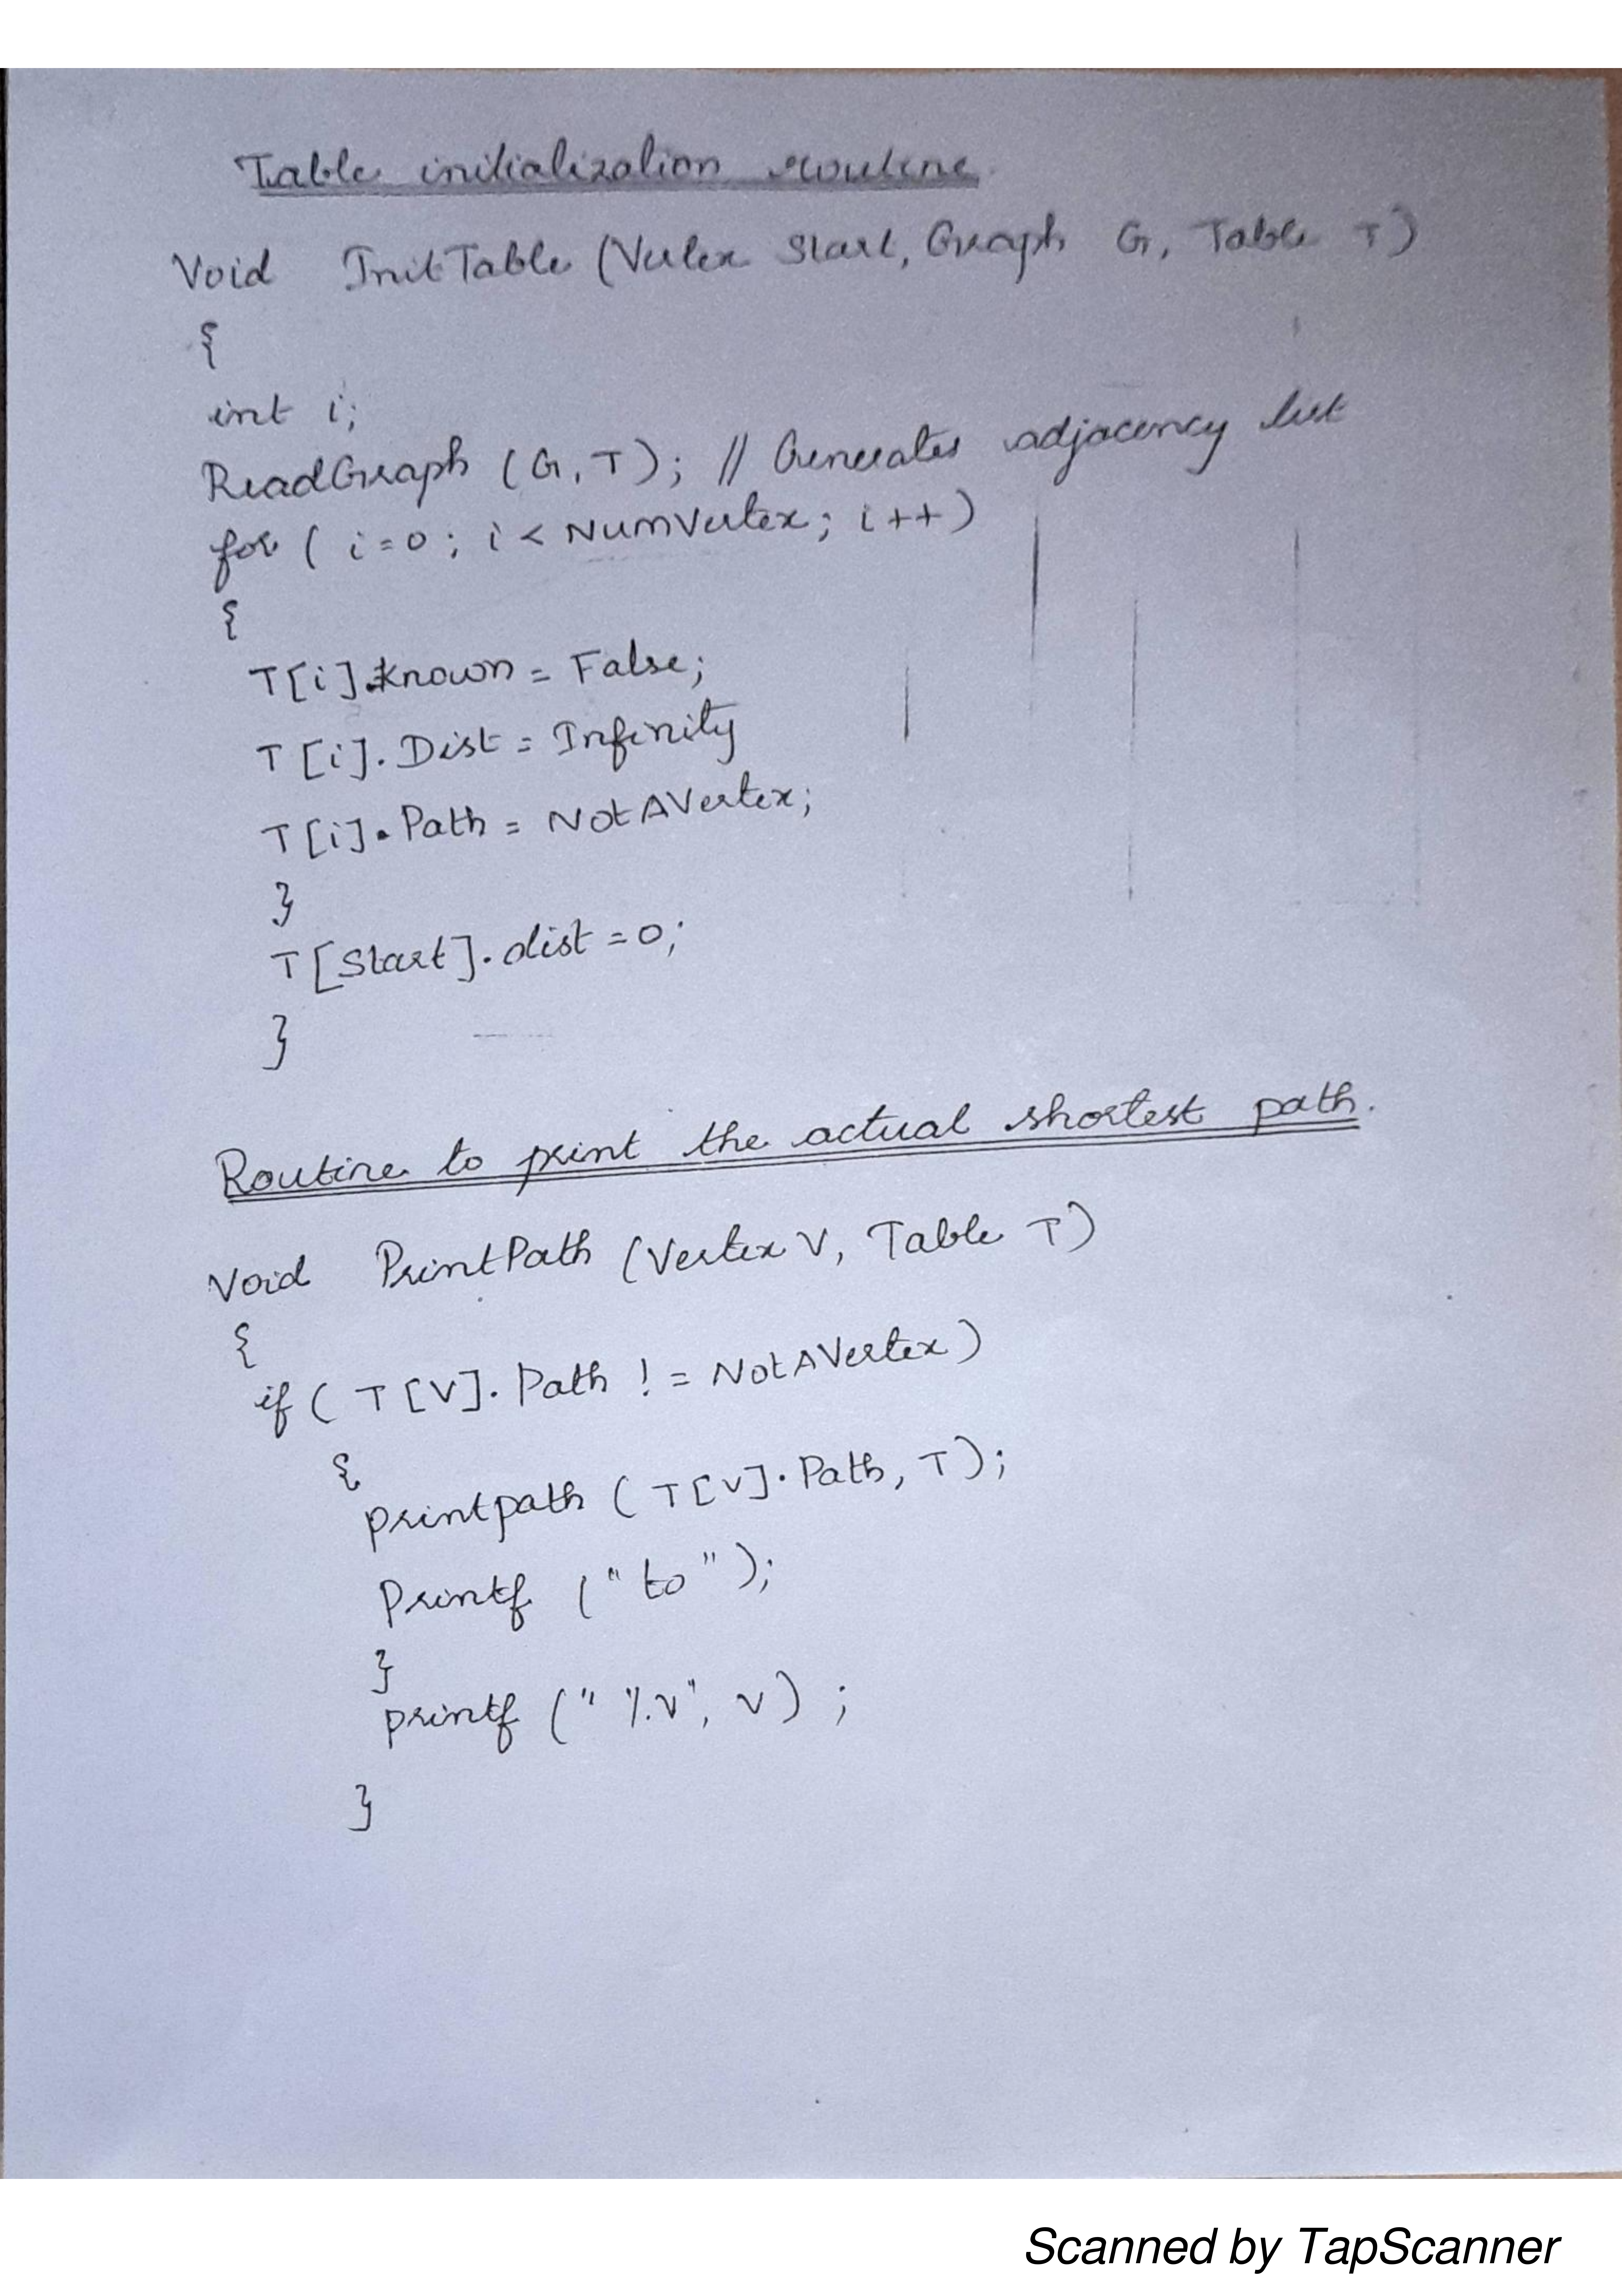 Table initialization routine
Void InitTable (Vertex Start, Graph G, Table T)
{
int i;
ReadGraph (G, T); // Generates adjacency list
for ( i=0 ; i < NumVertex; i++)
{
T[i].known = False;
T[i]. Dist = Infinity
T[i]. Path = NotAVertex;
}
T[Start]. dist = 0;
}
Routine to print the actual shortest path.
Void PrintPath (Vertex V, Table T)
{
if ( T[V]. Path != NotAVertex)
{
printpath ( T[V]. Path, T);
Printf ("to");
}
printf ("%v", v) ;
}
Scanned by TapScanner